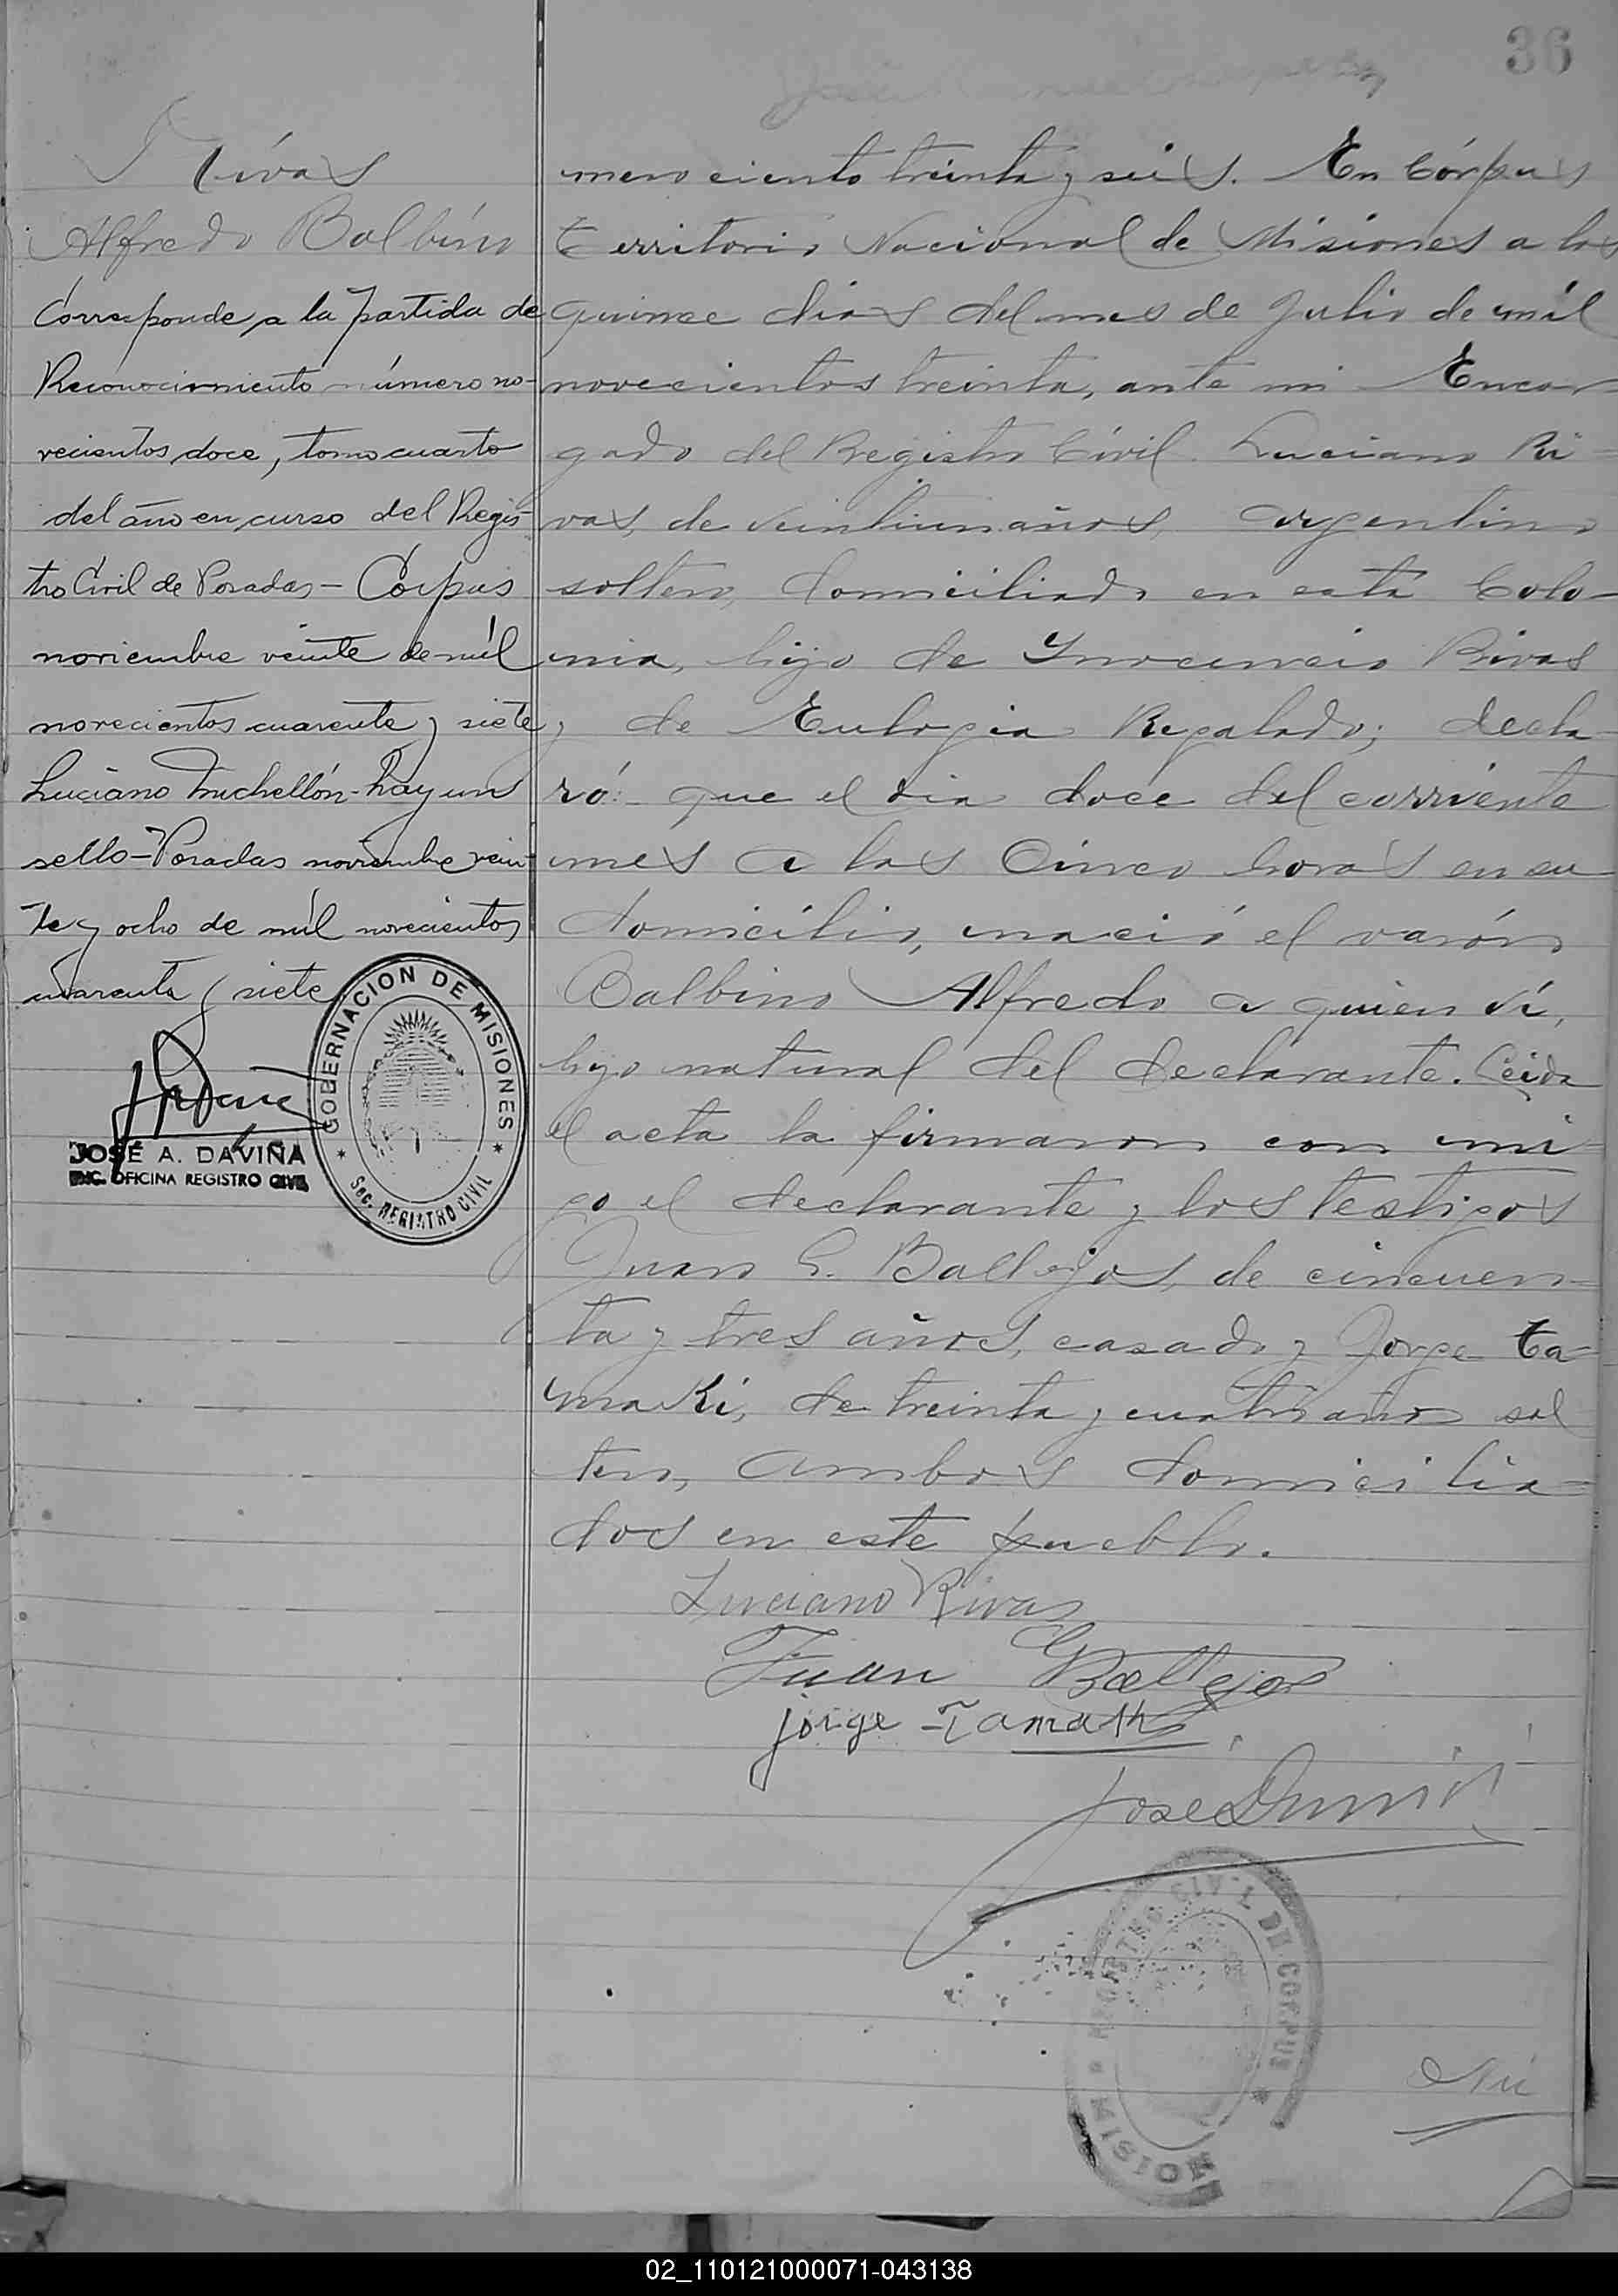 36
Rivas
Alfredo Balbino
Corresponde a la partida de
Reconocimiento número no-
vecientos doce, tomo cuarto
del año en curso del Regis-
tro Civil de Posadas - Córpus
noviembre veinte de mil
novecientos cuarenta y siete
Luciano hay un
sello - Posadas noviembre vein-
te y ocho de mil novecientos
cuarenta y siete
JOSÉ A. DAVIÑA
ENC. OFICINA REGISTRO CIVIL
GOBERNACION DE MISIONES
SEC. REGISTRO CIVIL
mero ciento treinta y seis. En Córpus
Territorio Nacional de Misiones a los
quince dias del mes de Julio de mil
novecientos treinta, ante mi Encar
gado del Registro Civil. Luciano Ri-
vas, de veintiun años, argentino
soltero, domiciliado en esta Colo-
nia, hijo de Inocencio Rivas
y de Eulogia Regalado; decla-
ró: que el dia doce del corriente
mes a las Cinco horas en su
domicilio, nació el varón
Balbino Alfredo a quien ví,
hijo natural del declarante. Leida
el acta la firmaron con mi-
go el declarante y los testigos
Juan G. Ballejos, de cincuen-
ta y tres años, casado y Jorge Ta-
maki, de treinta y cuatro años sol
tero, ambos domicilia-
dos en este pueblo.
Luciano Rivas
Juan G Ballejos
jorge Tamaki
Jose
REGISTRO CIVIL DE CORPUS
MISIONES
Nú
02_110121000071-043138